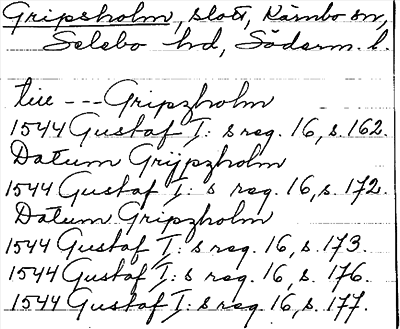 Gripsholm, slott, Kärnbo sn,
Selebo hd, Söderm. l.
tiie --- Gripzholm
1544 Gustaf I: s reg. 16, s. 162.
Datum Grijpzholm
1544 Gustaf I: s reg. 16, s. 172.
Datum Gripzholm
1544 Gustaf I: s reg. 16, s. 173.
1544 Gustaf I: s reg. 16, s. 176.
1544 Gustaf I: s reg. 16, s. 177.